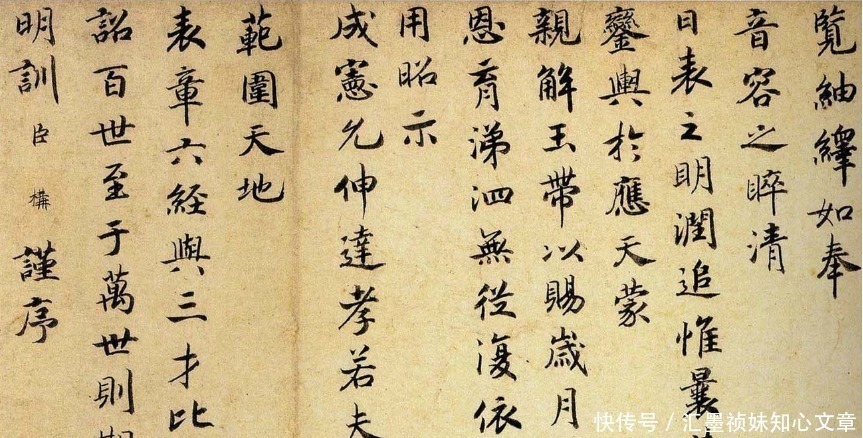 覽紬繹如奉
音容之睟清
日表之明潤追惟曩
鑾輿於應天蒙
親解玉帶以賜歲月
恩育涕泗無從復依
用昭示
成憲允伸達孝若夫
範圍天地
表章六經與三才比
詔百世至于萬世則
明訓臣構謹序
快传号/汇墨祯妹知心文章